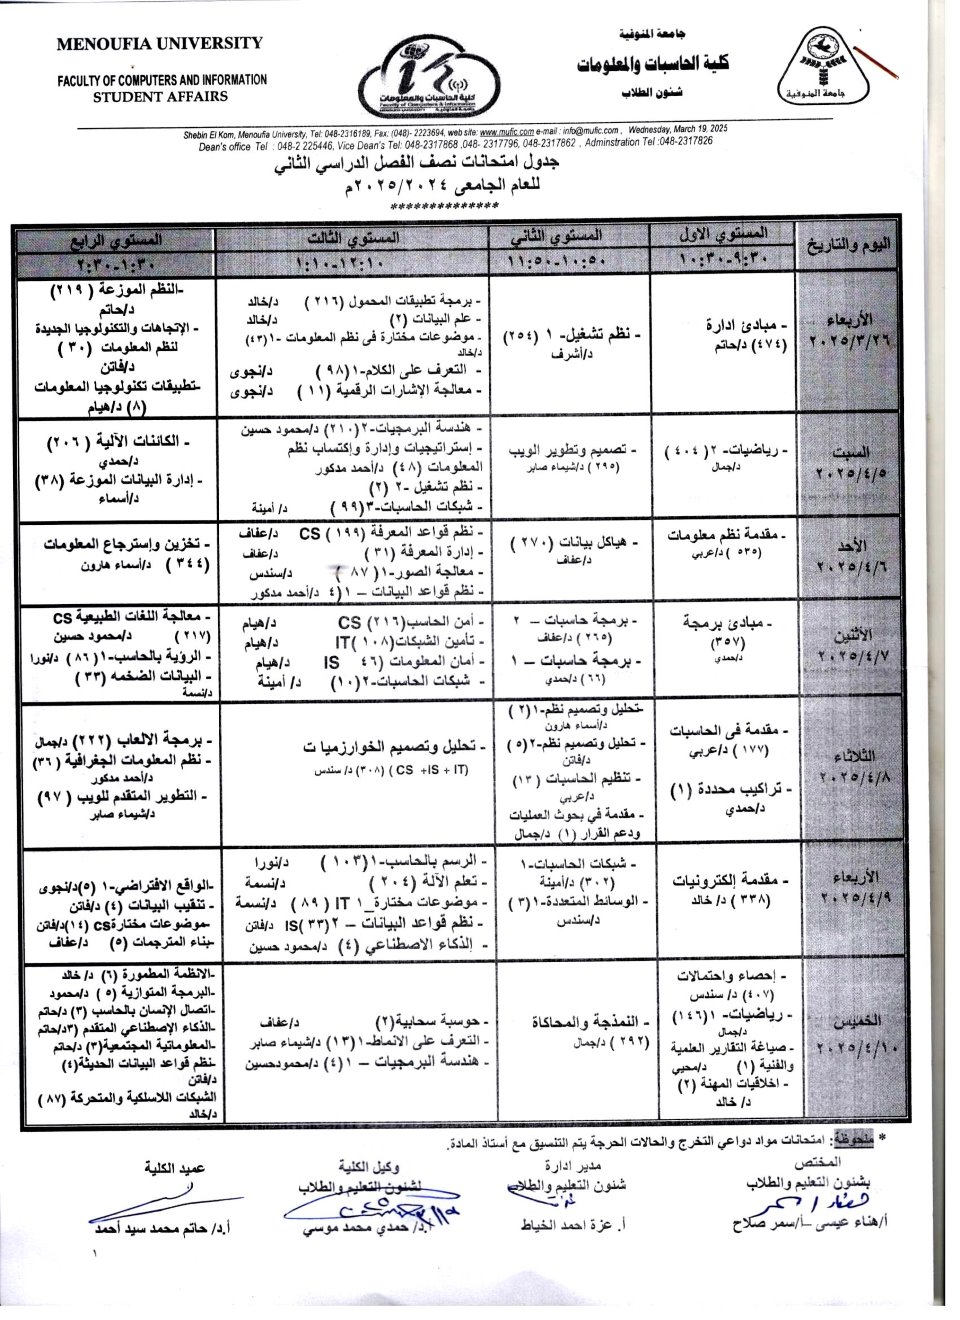 MENOUFIA UNIVERSITY
FACULTY OF COMPUTERS AND INFORMATION
STUDENT AFFAIRS
كلية الحاسبات والمعلومات
Faculty of Computers & Information
جامعة المنوفية
كلية الحاسبات والمعلومات
شئون الطلاب
جامعة المنوفية
Shebin El Kom, Menoufia University, Tel: 048-2316189, Fax: (048)- 2223694, web site: www.mufic.com e-mail : info@mufic.com , Wednesday, March 19, 2025
Dean's office Tel : 048-2 225446, Vice Dean's Tel: 048-2317868 ,048- 2317796, 048-2317862 , Adminstration Tel :048-2317826
جدول امتحانات نصف الفصل الدراسي الثاني
للعام الجامعى ٢٠٢٥/٢٠٢٤م
**************
اليوم والتاريخ
المستوي الاول
٩:٣٠-١٠:٣٠
المستوي الثاني
١٠:٥٠-١١:٥٠
المستوي الثالث
١٢:١٠-١:١٠
المستوي الرابع
١:٣٠-٢:٣٠
الأربعاء
٢٠٢٥/٣/٢٦
- مبادئ ادارة
(٤٧٤) د/حاتم
- نظم تشغيل- ١ (٢٥٤)
د/أشرف
- برمجة تطبيقات المحمول (٢١٦) د/خالد
- علم البيانات (٢) د/خالد
- موضوعات مختارة فى نظم المعلومات -١(٤٣)
د/خالد
- التعرف على الكلام-١(٩٨ ) د/نجوى
- معالجة الإشارات الرقمية (١١ ) د/نجوى
-النظم الموزعة (٢١٩ )
د/حاتم
- الإتجاهات والتكنولوجيا الجديدة
لنظم المعلومات (٣٠ )
د/فاتن
-تطبيقات تكنولوجيا المعلومات
(٨) د/هيام
السبت
٢٠٢٥/٤/٥
- رياضيات- ٢ (٤٠٤ )
د/جمال
- تصميم وتطوير الويب
(٢٩٥) د/شيماء صابر
- هندسة البرمجيات-٢(٢١٠) د/محمود حسين
- إستراتيجيات وإدارة وإكتساب نظم
المعلومات (٤٨) د/أحمد مدكور
- نظم تشغيل -٢ (٢)
- شبكات الحاسبات-٣(٩٩ ) د/ أمينة
- الكائنات الآلية (٢٠٦ )
د/حمدي
- إدارة البيانات الموزعة (٣٨)
د/أسماء
الأحد
٢٠٢٥/٤/٦
- مقدمة نظم معلومات
(٥٣٥) د/عربي
- هياكل بيانات (٢٧٠ )
د/عفاف
- نظم قواعد المعرفة (١٩٩ ) CS د/عفاف
- إدارة المعرفة (٣١ ) د/عفاف
- معالجة الصور-١(٨٧ ) د/سندس
- نظم قواعد البيانات – ١(٤ د/أحمد مدكور
- تخزين وإسترجاع المعلومات
(٣٤٤ ) د/أسماء هارون
الأثنين
٢٠٢٥/٤/٧
- مبادئ برمجة
(٣٥٧)
د/حمدي
- برمجة حاسبات – ٢
(٢٦٥ ) د/عفاف
- برمجة حاسبات – ١
(٦٦ ) د/حمدي
- أمن الحاسب(٢١٦) CS د/هيام
- تأمين الشبكات(١٠٨ )IT د/هيام
- أمان المعلومات (٤٦ IS د/هيام
- شبكات الحاسبات-٢(١٠) د/ أمينة
- معالجة اللغات الطبيعية CS
(٢١٧ ) د/محمود حسين
- الرؤية بالحاسب-١(٨٦ ) د/نورا
- البيانات الضخمه (٣٣ )
د/نسمة
الثلاثاء
٢٠٢٥/٤/٨
- مقدمة فى الحاسبات
(١٧٧ ) د/عربي
- تراكيب محددة (١)
د/حمدي
-تحليل وتصميم نظم-١(٢)
د/أسماء هارون
- تحليل وتصميم نظم-٢(٥)
د/فاتن
- تنظيم الحاسبات (١٣)
د/عربي
- مقدمة في بحوث العمليات
ودعم القرار (١) د/جمال
- تحليل وتصميم الخوارزميات
(CS +IS + IT ) (٣٠٨) د/ سندس
- برمجة الالعاب (٢٢٢) د/جمال
- نظم المعلومات الجغرافية (٣٦)
د/أحمد مدكور
- التطوير المتقدم للويب (٩٧ )
د/شيماء صابر
الأربعاء
٢٠٢٥/٤/٩
- مقدمة إلكترونيات
(٣٣٨ ) د/ خالد
- شبكات الحاسبات-١
(٣٠٢) د/أمينة
- الوسائط المتعددة-١(٣)
د/سندس
- الرسم بالحاسب-١(١٠٣ ) د/نورا
- تعلم الآلة (٢٠٤ ) د/نسمة
- موضوعات مختارة_١ IT (٨٩ ) د/نسمة
- نظم قواعد البيانات – ٢(٣٣ )IS د/فاتن
- الذكاء الاصطناعي (٤) د/محمود حسين
-الواقع الافتراضي-١ (٥)د/نجوى
- تنقيب البيانات (٤) د/فاتن
-موضوعات مختارةCS (١٤)د/فاتن
-بناء المترجمات (٥) د/عفاف
الخميس
٢٠٢٥/٤/١٠
- إحصاء واحتمالات
(٤٠٧) د/ سندس
- رياضيات-١(١٤٦)
د/جمال
- صياغة التقارير العلمية
والفنية (١) د/محيي
- اخلاقيات المهنة (٢)
د/ خالد
- النمذجة والمحاكاة
(٢٩٢ ) د/جمال
- حوسبة سحابية(٢) د/عفاف
- التعرف على الانماط-١(١٣) د/شيماء صابر
- هندسة البرمجيات – ١(٤) د/محمودحسين
-الانظمة المطمورة (٦) د/ خالد
-البرمجة المتوازية (٥ ) د/محمود
- اتصال الإنسان بالحاسب (٣) د/حاتم
-الذكاء الإصطناعي المتقدم (٣د/حاتم
-المعلوماتية المجتمعية(٣) د/حاتم
-نظم قواعد البيانات الحديثة(٤)
د/فاتن
الشبكات اللاسلكية والمتحركة (٨٧ )
د/خالد
* ملحوظة: امتحانات مواد دواعي التخرج والحالات الحرجة يتم التنسيق مع أستاذ المادة.
المختص
بشئون التعليم والطلاب
أ/هناء عيسى –أ/سمر صلاح
مدير ادارة
شئون التعليم والطلاب
أ. عزة احمد الخياط
وكيل الكلية
لشئون التعليم والطلاب
أ.د/ حمدي محمد موسي
عميد الكلية
أ.د/ حاتم محمد سيد أحمد
١